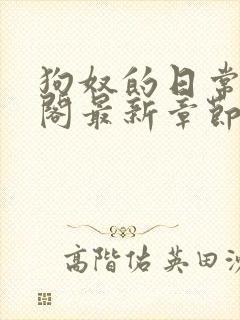 狗奴的日常
阁最新章節
高階佑英田